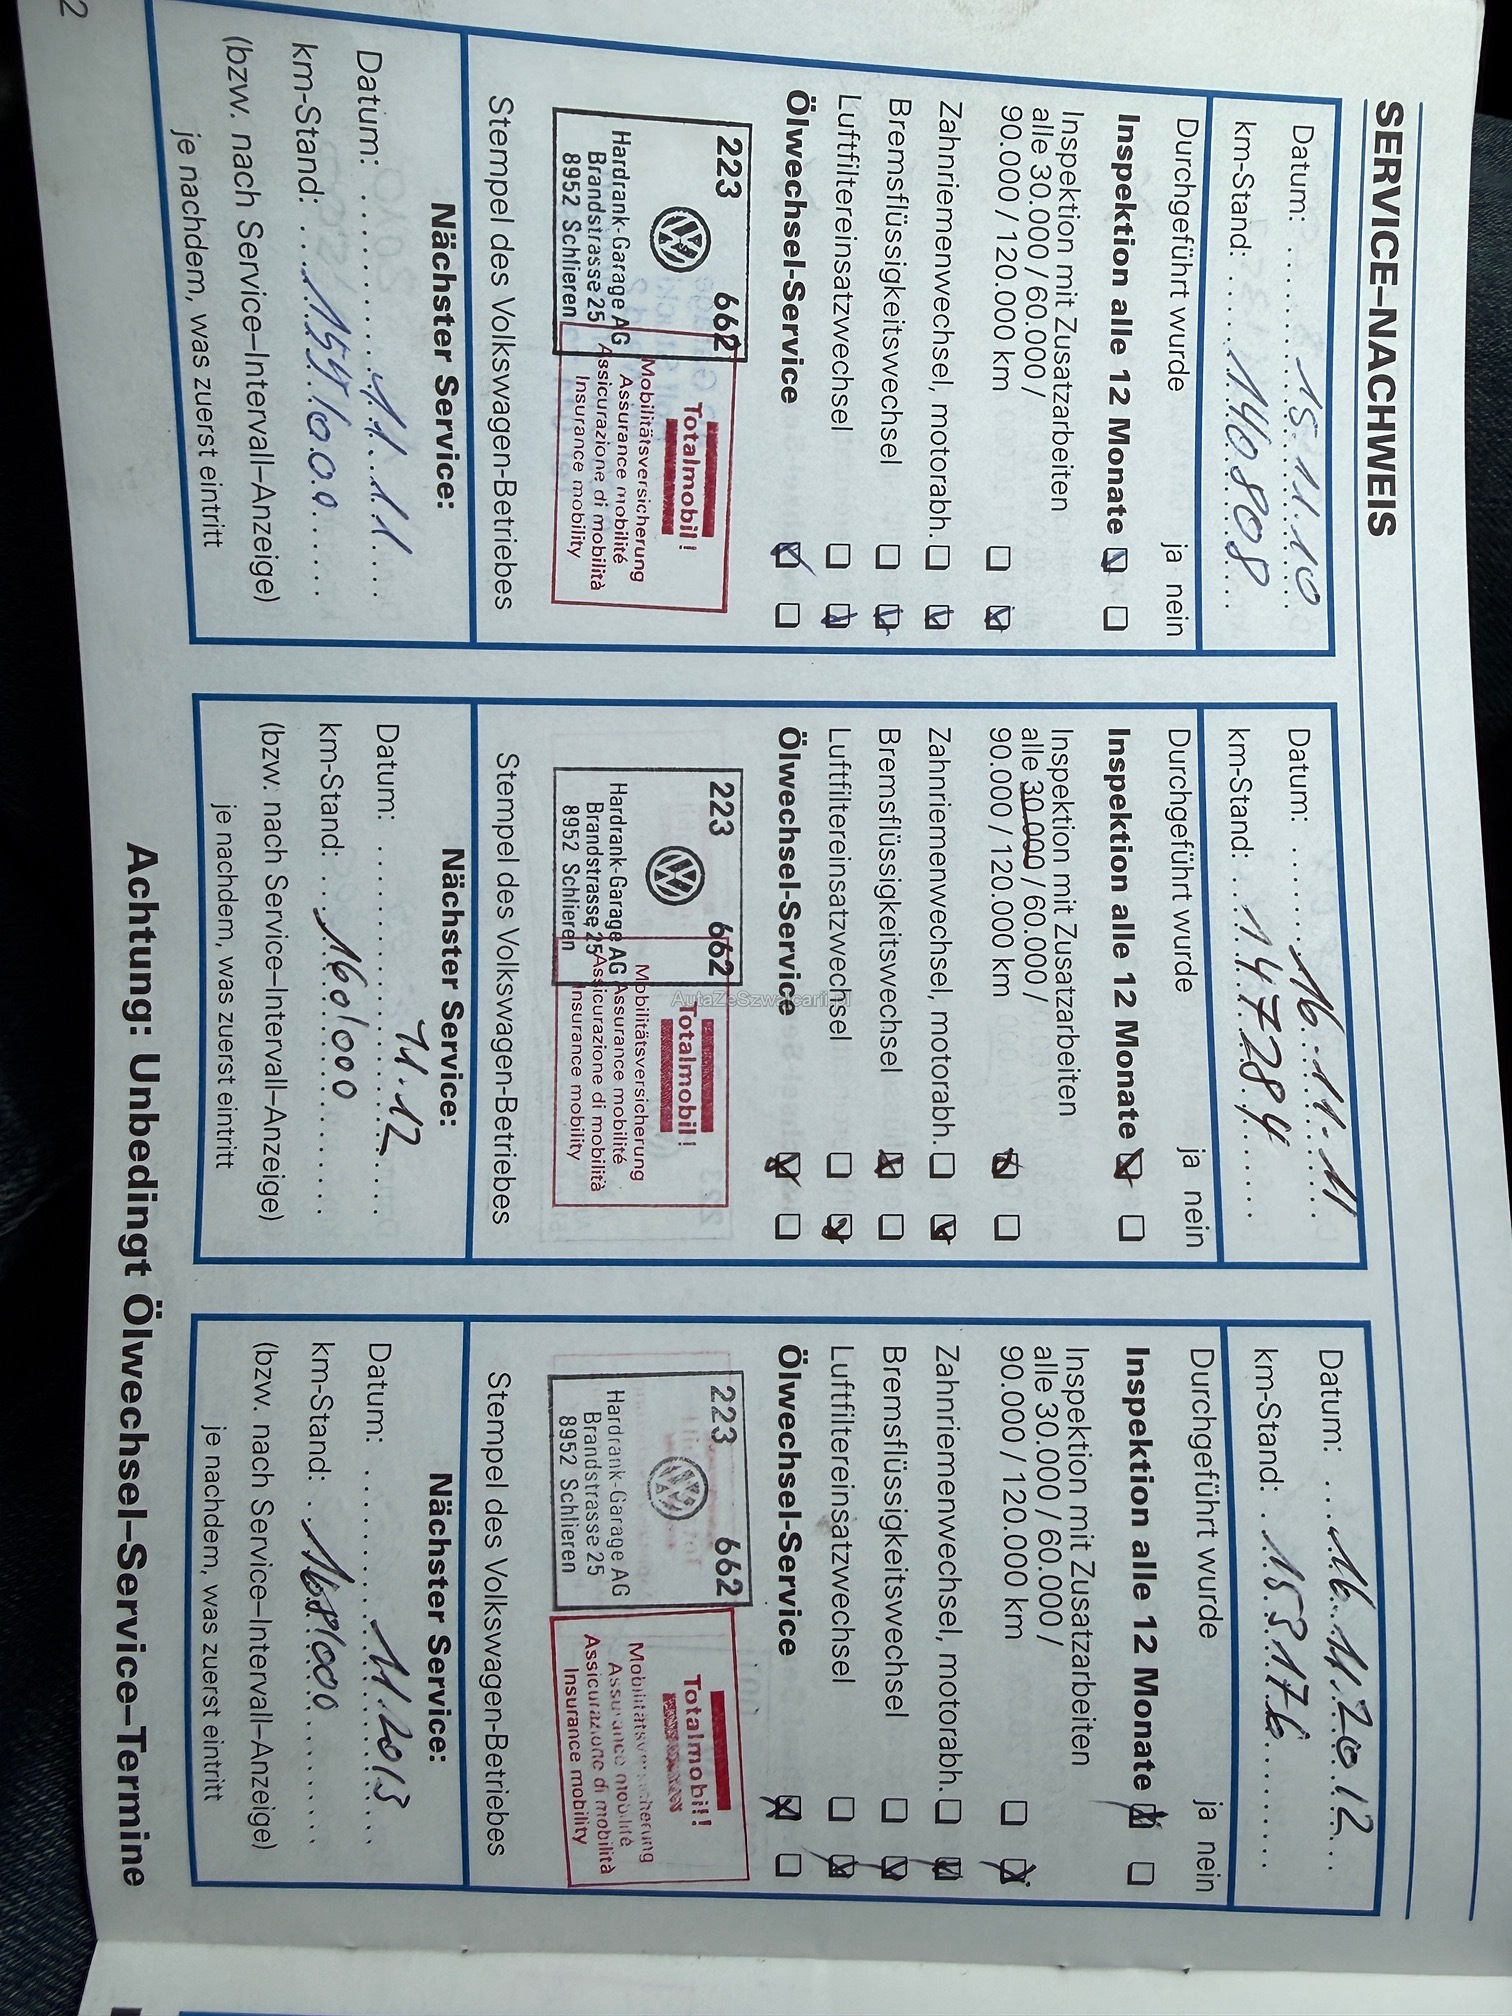 SERVICE–NACHWEIS
Datum: 15.11.10
km-Stand: 140808
Durchgeführt wurde ja nein
Inspektion alle 12 Monate
Inspektion mit Zusatzarbeiten
alle 30.000 / 60.000 /
90.000 / 120.000 km
Zahnriemenwechsel, motorabh.
Bremsflüssigkeitswechsel
Luftfiltereinsatzwechsel
Ölwechsel-Service
223 662
Hardrank-Garage AG
Brandstrasse 25
8952 Schlieren
Totalmobil!
Mobilitätsversicherung
Assurance mobilité
Assicurazione di mobilità
Insurance mobility
Stempel des Volkswagen-Betriebes
Nächster Service:
Datum: 11.11
km-Stand: 155'000
(bzw. nach Service–Intervall–Anzeige)
je nachdem, was zuerst eintritt
Datum: 16.11.11
km-Stand: 147284
Durchgeführt wurde ja nein
Inspektion alle 12 Monate
Inspektion mit Zusatzarbeiten
alle 30.000 / 60.000 /
90.000 / 120.000 km
Zahnriemenwechsel, motorabh.
Bremsflüssigkeitswechsel
Luftfiltereinsatzwechsel
Ölwechsel-Service
AutaZeSzwajcarii.pl
223 662
Hardrank-Garage AG
Brandstrasse 25
8952 Schlieren
Totalmobil!
Mobilitätsversicherung
Assurance mobilité
Assicurazione di mobilità
Insurance mobility
Stempel des Volkswagen-Betriebes
Nächster Service:
Datum: 11.12
km-Stand: 160'000
(bzw. nach Service–Intervall–Anzeige)
je nachdem, was zuerst eintritt
Datum: 16.11.2012
km-Stand: 153176
Durchgeführt wurde ja nein
Inspektion alle 12 Monate
Inspektion mit Zusatzarbeiten
alle 30.000 / 60.000 /
90.000 / 120.000 km
Zahnriemenwechsel, motorabh.
Bremsflüssigkeitswechsel
Luftfiltereinsatzwechsel
Ölwechsel-Service
223 662
Hardrank-Garage AG
Brandstrasse 25
8952 Schlieren
Totalmobil!
Mobilitätsversicherung
Assurance mobilité
Assicurazione di mobilità
Insurance mobility
Stempel des Volkswagen-Betriebes
Nächster Service:
Datum: 11.2013
km-Stand: 168'000
(bzw. nach Service–Intervall–Anzeige)
je nachdem, was zuerst eintritt
Achtung: Unbedingt Ölwechsel–Service–Termine